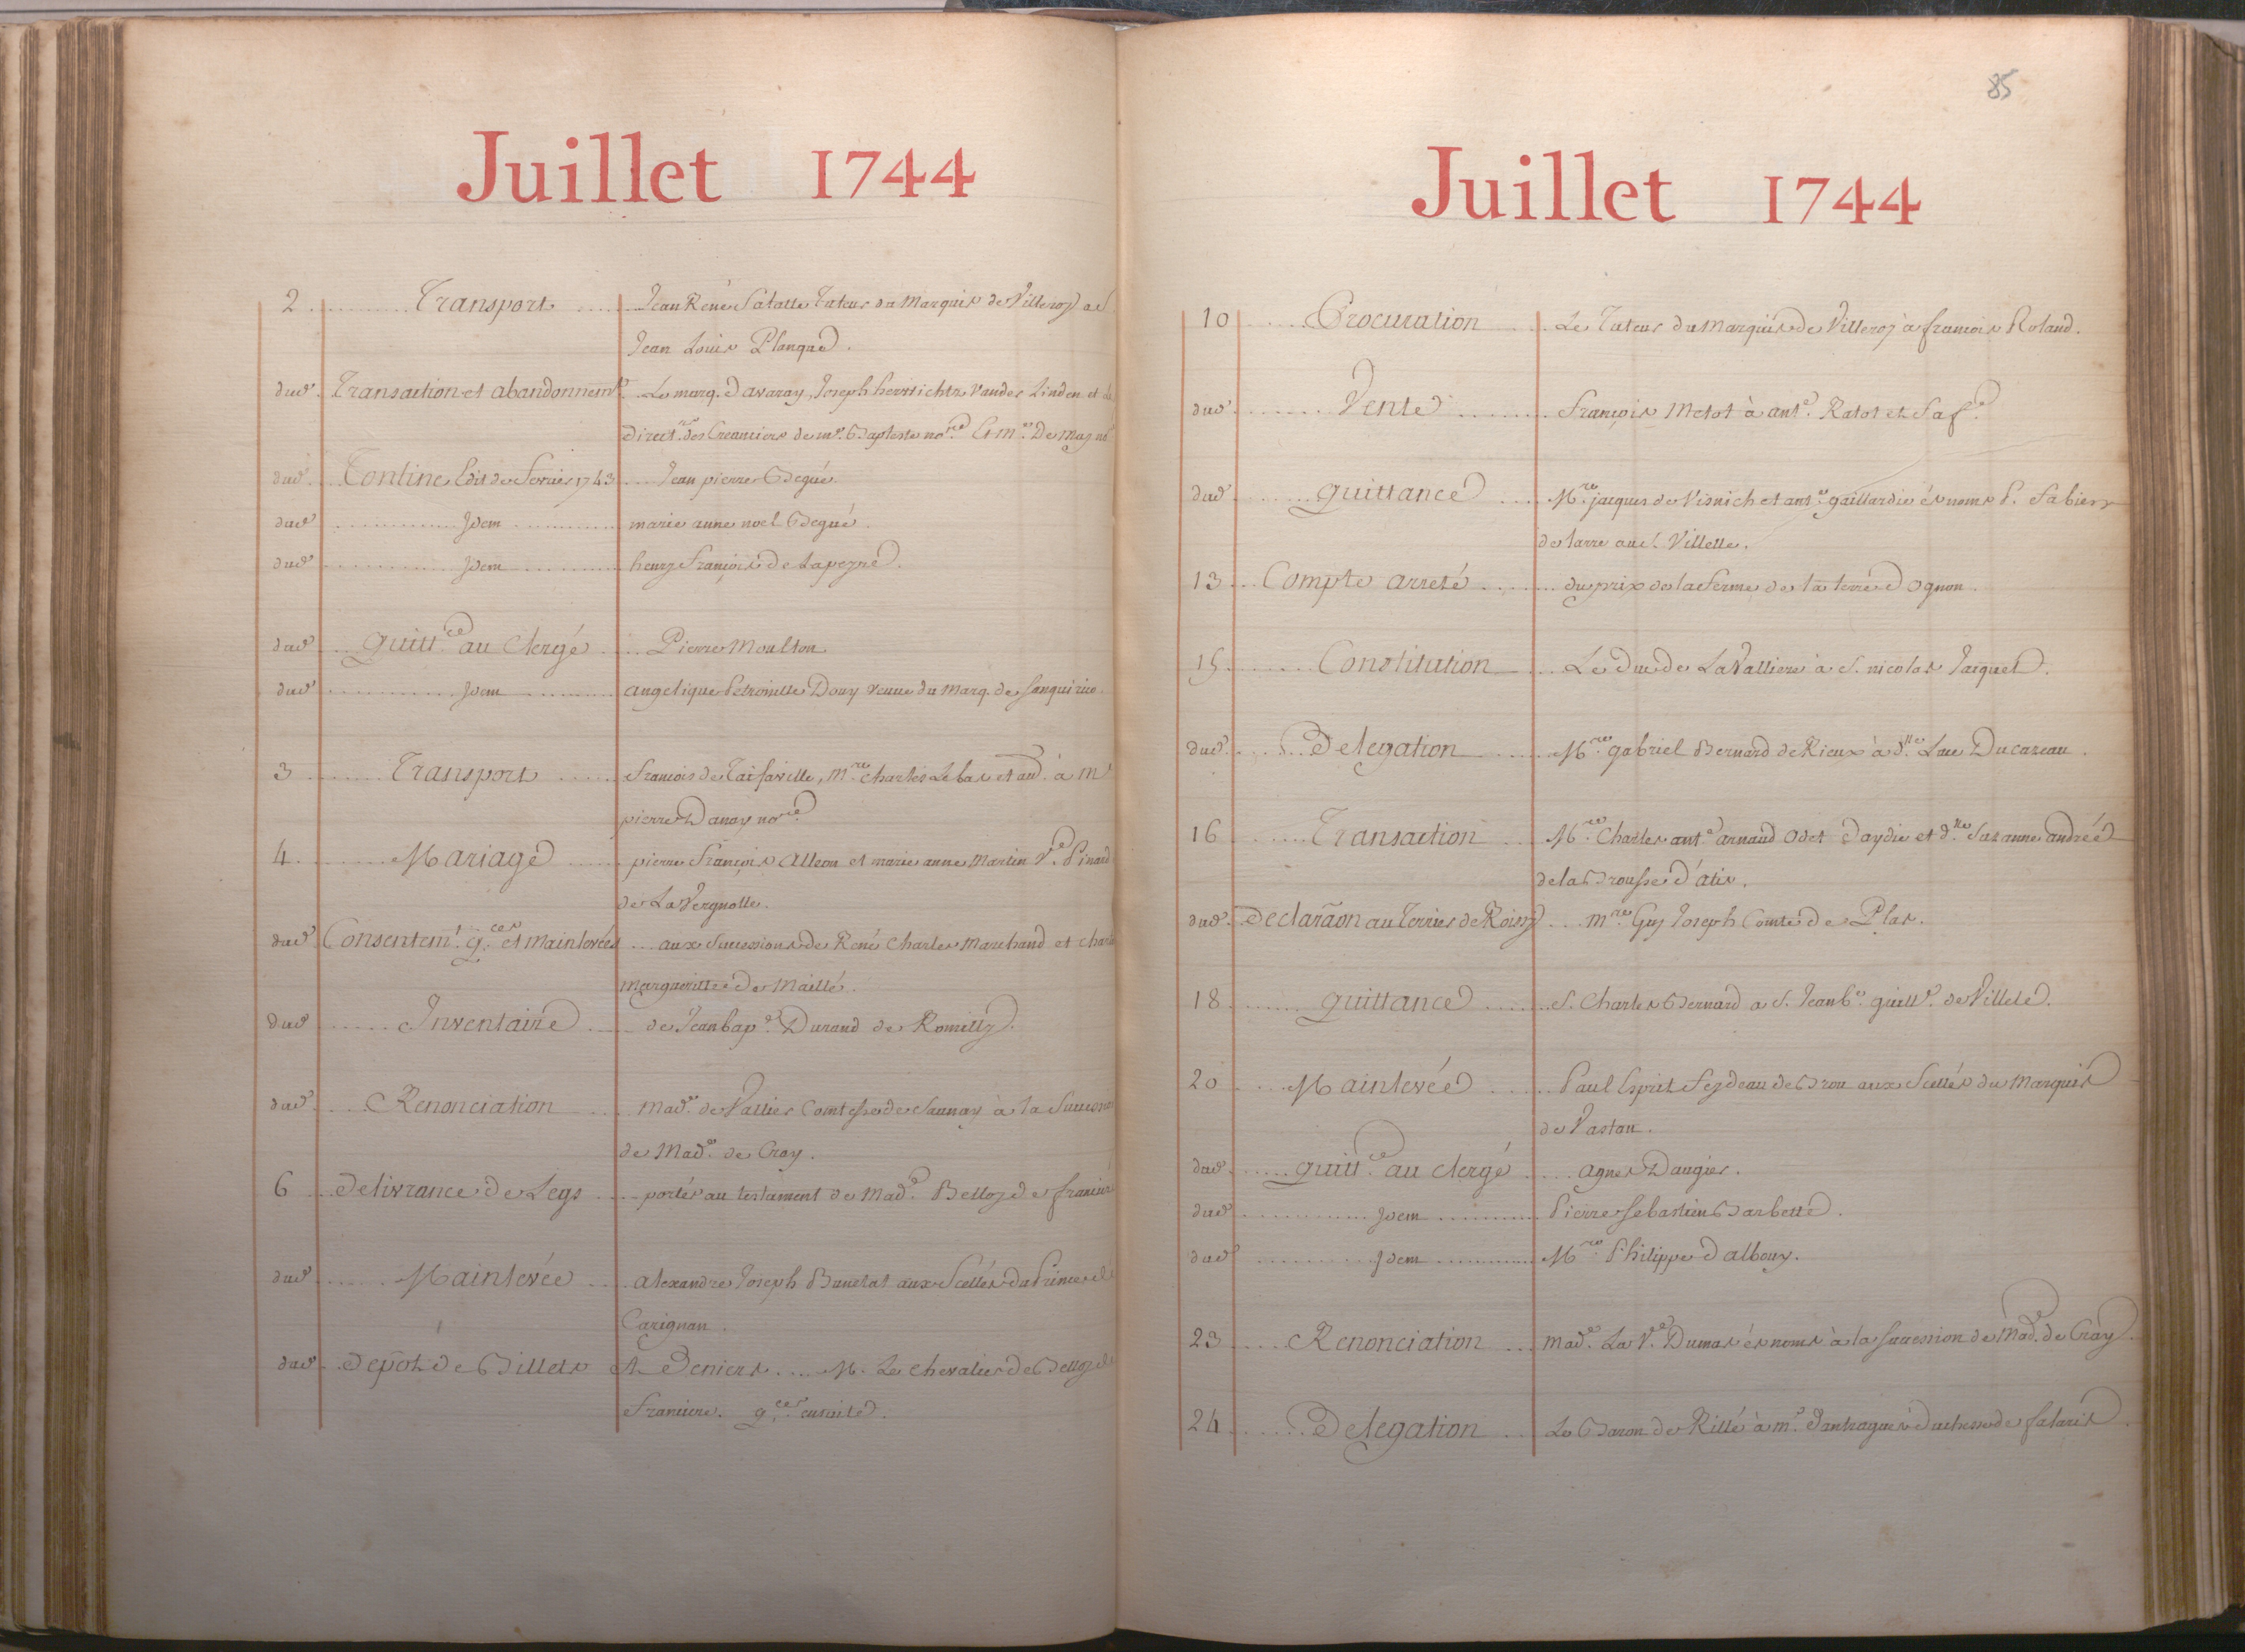 Juillet 1744
2 Transport Jean René Tuteur du Marquis de Villeroy
Jean Louis Planque.
dud. Transaction et abandonnemt. Le marq. Davaray, Joseph Vander Linden et
direct.rs des Creanciers de me. Baptiste no.re Et me. De May
dud. Tontine Edit de Fevrier 1743 Jean pierre Begué.
dud. Idem marie anne noel Begué.
dud. Idem henry François de Lapeyre.
dud. quitt.ce au Clergé Pierre Moulton
dud. Idem angelique Petronille Douy veuve du Marq. de sanquirico.
3 Transport francois de Taifaville, M.re Charles Lebas et au. à Me
pierre Danay no.re
4 Mariage pierre François Alleon et marie anne Martin V.e Pinard
de La Vergnolle.
dud. Consentemt. q.ces et mainlevées aux Successions de René Charles Marchand et
margueritte de Maillé.
dud. Inventaire de Jean bap.e Durand de Romilly.
dud. Renonciation Mad.e de Vallier Comtesse de saunay à la
de Mad.e de Cray.
6 delivrance de Legs portés au testament de Mad.e Belloy de
dud. Mainlevée alexandre Joseph Banetat aux Scellés du Prince de
Carignan.
dud. depôt de Billets Et Deniers M. Le chevalier de Belloy de
franciere. q.ces ensuite.
85
Juillet 1744
10 Procuration Le Tuteur du Marquis de Villeroy à francois Roland.
dud. Vente François Metot à ant.e Ratot et Saf.e
dud. quittance M.re jacques de Visnich et ant.e gaillardie és noms P. Fabien
de larre au S. Villelle.
13 Compte arreté du prix de la ferme de la terre Dognon.
15 Constitution Le Duc de LaValliere à S. nicolas Jacquet.
dud. Delegation M.re gabriel Bernard de Rieux à d.lle Luce Ducazeau.
16 Transaction M.re Charles ant.e arnaud Odet Daydie et d.lle Suzanne andrée
de la Brousse d'atis.
dud. declaraon au Terrier de Roissy m.re Guy Joseph Comte de Plas.
18 quittance S. Charles Bernard a S. Jean b.e guill.e de Villele.
20 Mainlevée Paul Esprit feydeau de Brou aux Scellés du Marquis
de Vastan.
dud. quitt.ce au clergé agnes Daugier.
dud. Idem Pierre sebastien Barbette.
dud. Idem M.re Philippe Dalbouy.
23 Renonciation mad.e La V.e Dumas és noms à la succession de Mad.e de Cray.
24 Delegation Le Baron de Rillé à m.e Dantragues duchesse de falaris.